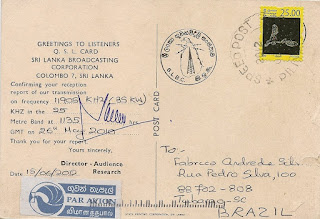 GREETINGS TO LISTENERS
Q. S. L. CARD
SRI LANKA BROADCASTING
CORPORATION
COLOMBO 7, SRI LANKA
Confirming your reception
report of our transmission
on frequency 11905 KHZ (35 KW)
KHZ in the 25
Metre Band at 1135
GMT on 26th May 2010
Thank you for your report.
Yours sincerely,
Director - Audience
Research
Date
PAR AVION
POST CARD
SLBC
SPEED POST
25.00
To -
Fabricio Andrade Silva
Rua Pedro Silva, 100
88702-808
BRAZIL